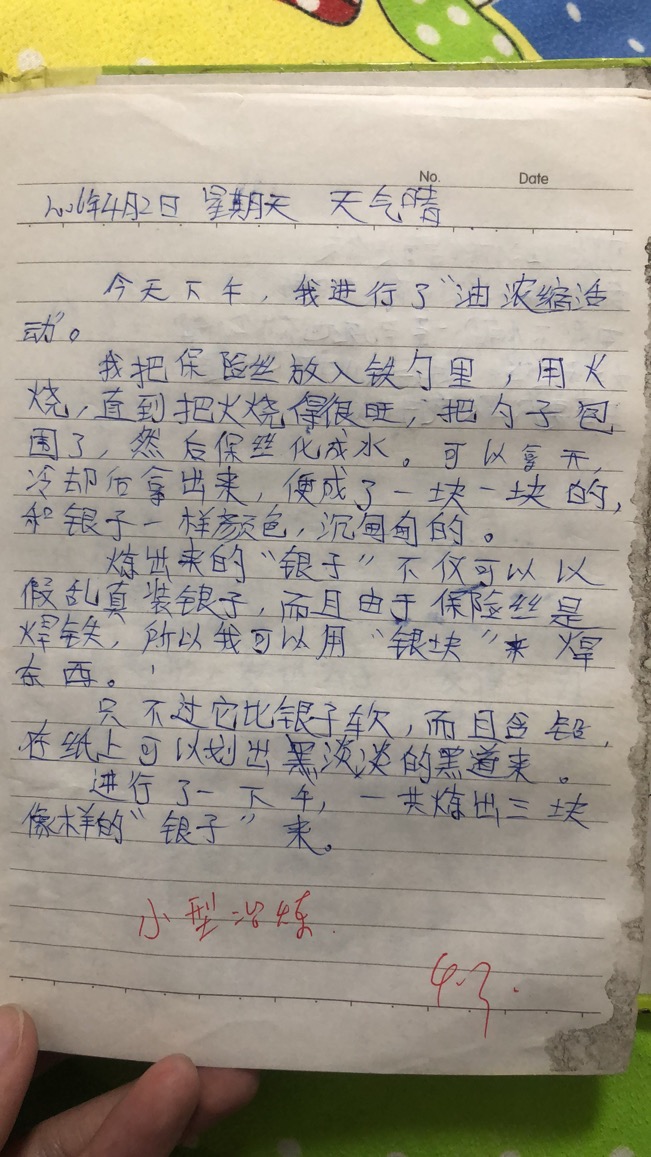 No. Date
2006年4月2日 星期天 天气晴
今天下午，我进行了“油浓缩活
动”。
我把保险丝放入铁勺里，用火
烧，直到把火烧得很旺，把勺子包
围了，然后保丝化成水。可以拿开，
冷却后拿出来，便成了一块一块的，
和银子一样颜色，沉甸甸的。
炼出来的“银子”不仅可以以
假乱真装银子，而且由于保险丝是
焊铁，所以我可以用“银块”来焊
东西。
只不过它比银子软，而且含铅，
在纸上可以划出黑淡淡的黑道来。
进行了一下午，一共炼出三块
像样的“银子”来。
小型冶炼
4.3.